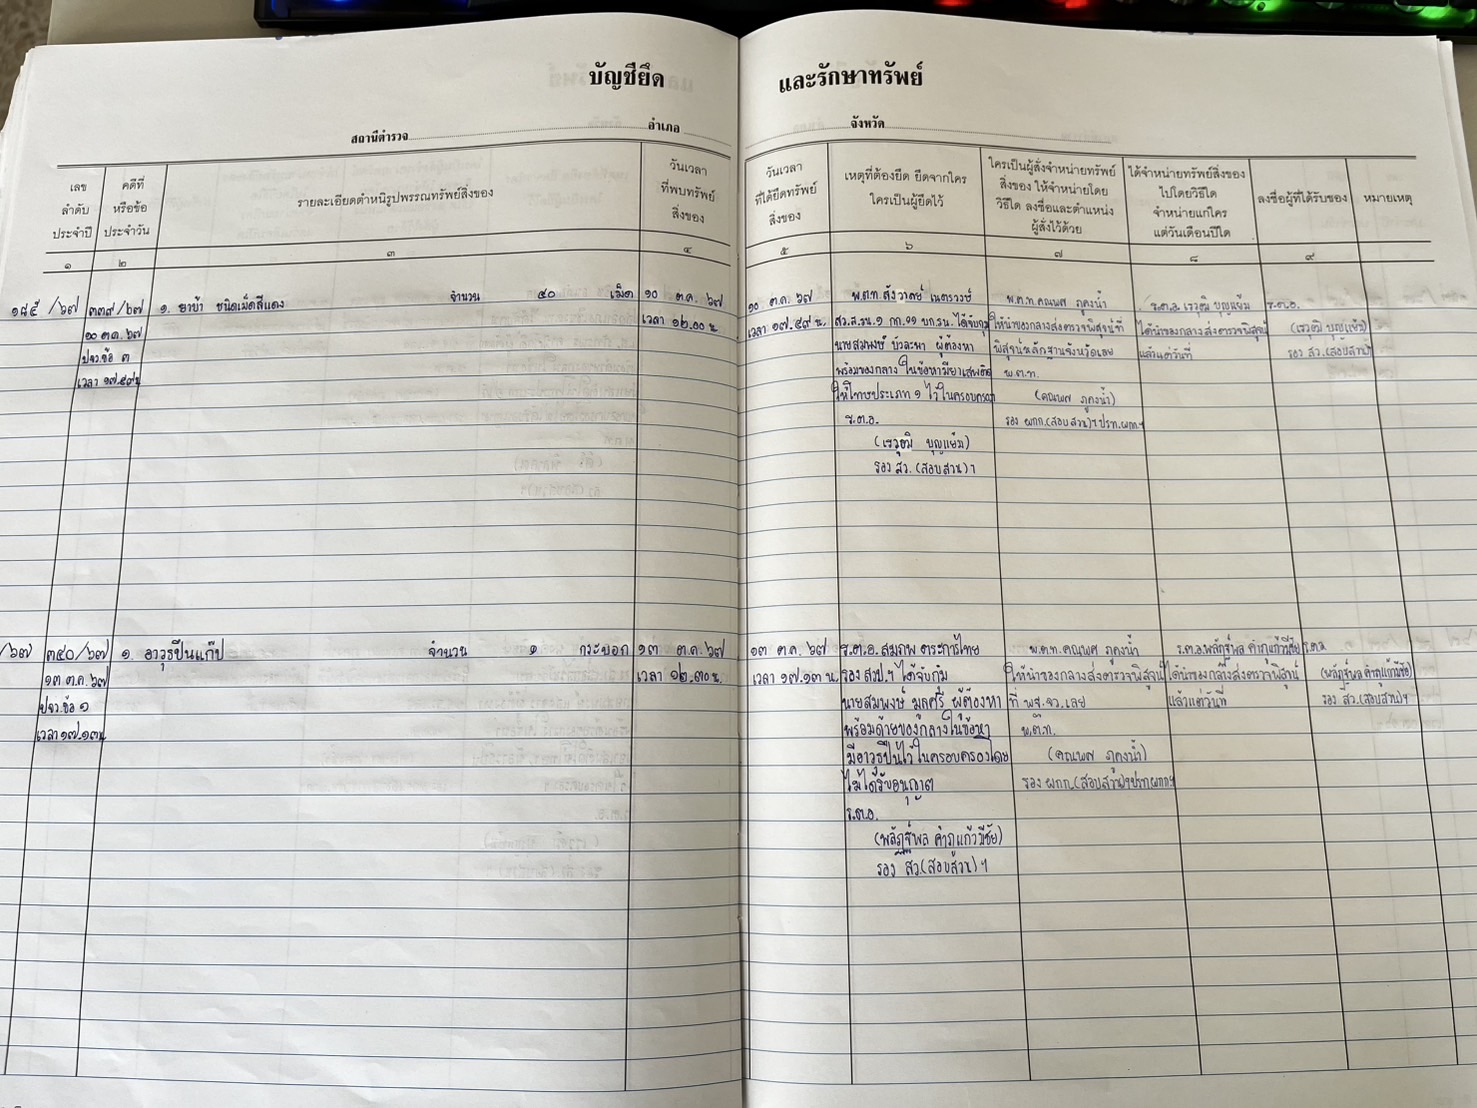 บัญชียึด และรักษาทรัพย์
สถานีตำรวจ อำเภอ จังหวัด
เลข
ลำดับ
ประจำปี
คดีที่
หรือข้อ
ประจำวัน
รายละเอียดตำหนิรูปพรรณทรัพย์สิ่งของ
วันเวลา
ที่พบทรัพย์
สิ่งของ
วันเวลา
ที่ได้ยึดทรัพย์
สิ่งของ
เหตุที่ต้องยึด ยึดจากใคร
ใครเป็นผู้ยึดไว้
ใครเป็นผู้สั่งจำหน่ายทรัพย์
สิ่งของ ให้จำหน่ายโดย
วิธีใด ลงชื่อและตำแหน่ง
ผู้สั่งไว้ด้วย
ได้จำหน่ายทรัพย์สิ่งของ
ไปโดยวิธีใด
จำหน่ายแก่ใคร
แต่วันเดือนปีใด
ลงชื่อผู้ที่ได้รับของ
หมายเหตุ
๑ ๒ ๓ ๔ ๕ ๖ ๗ ๘ ๙
๑๘๕ /๖๗
๓๓๙/๖๗
๑๐ ต.ค. ๖๗
ปจว.ข้อ ๓
เวลา ๑๗.๕๙น
๑. ยาบ้า ชนิดเม็ดสีแดง จำนวน ๔๐ เม็ด
๑๐ ต.ค. ๖๗
เวลา ๑๒.๐๐ น
๑๐ ต.ค. ๖๗
เวลา ๑๗.๕๙ น.
พ.ต.ท. เนตรวงษ์
สว.ส.รน.๑ กก.๑๑ บก.รน. ได้จับกุม
นายสมพงษ์ บัวละพา ผู้ต้องหา
พร้อมของกลาง ในข้อหามียาเสพติด
ให้โทษประเภท ๑ ไว้ในครอบครอง
ร.ต.อ.
(เรวุฒิ บุญแย้ม)
รอง สว.(สอบสวน)ฯ
พ.ต.ท.คณพศ ภูคงน้ำ
ให้นำของกลางส่งตรวจพิสูจน์ที่
พิสูจน์หลักฐานจังหวัดเลย
พ.ต.ท.
(คณพศ ภูคงน้ำ)
รอง ผกก.(สอบสวน)ฯปรท.ผกก.ฯ
ร.ต.อ. เรวุฒิ บุญแย้ม
ได้นำของกลางส่งตรวจพิสูจน์
แล้วแต่วันที่
ร.ต.อ.
(เรวุฒิ บุญแย้ม)
รอง สว.(สอบสวน)
/๖๗
๓๔๐/๖๗
๑๓ ต.ค. ๖๗
ปจว.ข้อ ๑
เวลา ๑๗.๑๓น
๑. อาวุธปืนแก๊ป จำนวน ๑ กระบอก
๑๓ ต.ค. ๖๗
เวลา ๑๒.๓๐ น.
๑๓ ต.ค. ๖๗
เวลา ๑๗.๑๓ น.
ร.ต.อ. สมภพ ตระการไทย
รอง สวป.ฯ ได้จับกุม
นายสมพงษ์ มูลศรี ผู้ต้องหา
พร้อมด้วยของกลางในข้อหา
มีอาวุธปืนไว้ในครอบครองโดย
ไม่ได้รับอนุญาต
ร.ต.อ.
รอง สว.(สอบสวน)ฯ
พ.ต.ท.คณพศ ภูคงน้ำ
ให้นำของกลางส่งตรวจพิสูจน์
ที่ พฐ.จว.เลย
พ.ต.ท.
(คณพศ ภูคงน้ำ)
รอง ผกก.(สอบสวน)ฯปรท.ผกก.ฯ
ได้นำของกลางส่งตรวจพิสูจน์
แล้วแต่วันที่
ร.ต.อ.
รอง สว.(สอบสวน)ฯ